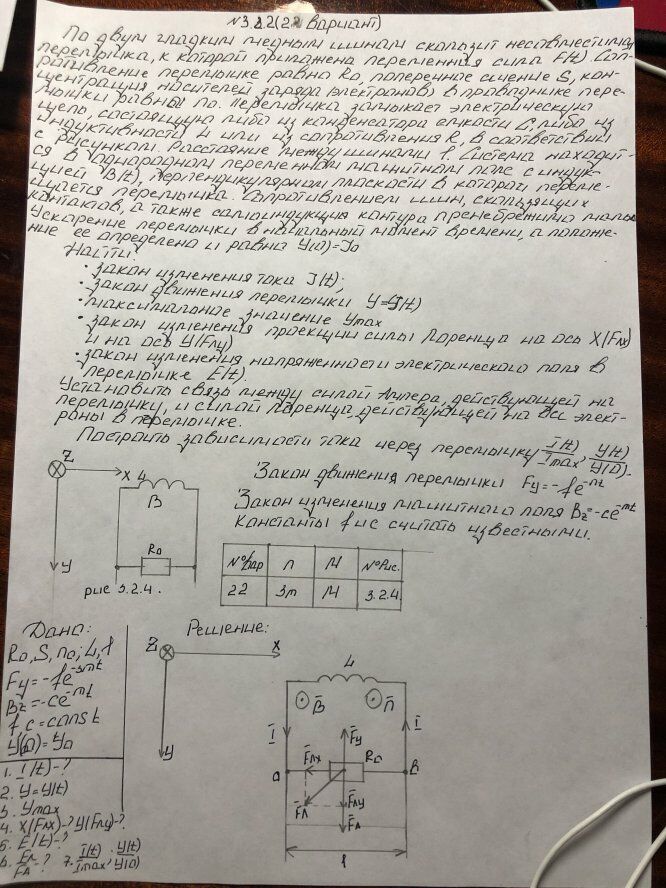 №3.2.2(22 вариант)
По двум гладким медным шинам скользит
перемычка, к которой приложена переменная сила F(t). Соп-
ротивление перемычке равна R₀, поперечное сечение S, кон-
центрация носителей заряда (электронов) в проводнике пере-
мычки равны n₀. Перемычка замыкает электрическую
цепь, состоящую либо из конденсатора емкости C, либо из
индуктивности L или из сопротивления R, в соответствии
с рисунком. Расстояние между шинами l. Система находит-
ся в однородном переменном магнитном поле с индук-
цией B(t), перпендикулярном плоскости в которой переме-
щается перемычка. Сопротивлением шин, скользящих
контактов, а также самоиндукция контура пренебрежимо малы
Ускорение перемычки в начальный момент времени, а положе-
ние ее определено и равна y(0)=y₀
Найти:
• закон изменения тока I(t);
• закон движения перемычки y=y(t)
• максимальное значение ymax
• закон изменения проекций силы Лоренца на ось X(Fлx)
и на ось Y(Fлy)
• закон изменения напряженности электрического поля в
перемычке E(t).
Установить связь между силой Ампера, действующей на
перемычку, и силой Лоренца, действующей на все элект-
роны в перемычке.
Построить зависимости тока через перемычку I(t)/Imax, y(t)/y(0).
Закон движения перемычки Fy=-fe⁻ⁿᵗ
Закон изменения магнитного поля Bz=-ce⁻ᵐᵗ
Константы f и c считать известными.
Z
X
L
B
R₀
y
рис 3.2.4.
№Вар n M №Рис.
22 3m M 3.2.4
Дано:
R₀, S, n₀; L, l
Fy=-fe⁻³ᵐᵗ
Bz=-ce⁻ᵐᵗ
f c=const
y(0)=y₀
1. I(t)-?
2. y=y(t)
3. ymax
4. X(Fлx)-? y(Fлy)-?
5. E(t)-?
6. Fл/FA-? 7. I(t)/Imax; y(t)/y(0)
Решение:
Z
X
y
L
B̄ n̄
Ī Ī
F̄y
F̄лx R₀
a b
F̄л F̄лy
F̄A
l